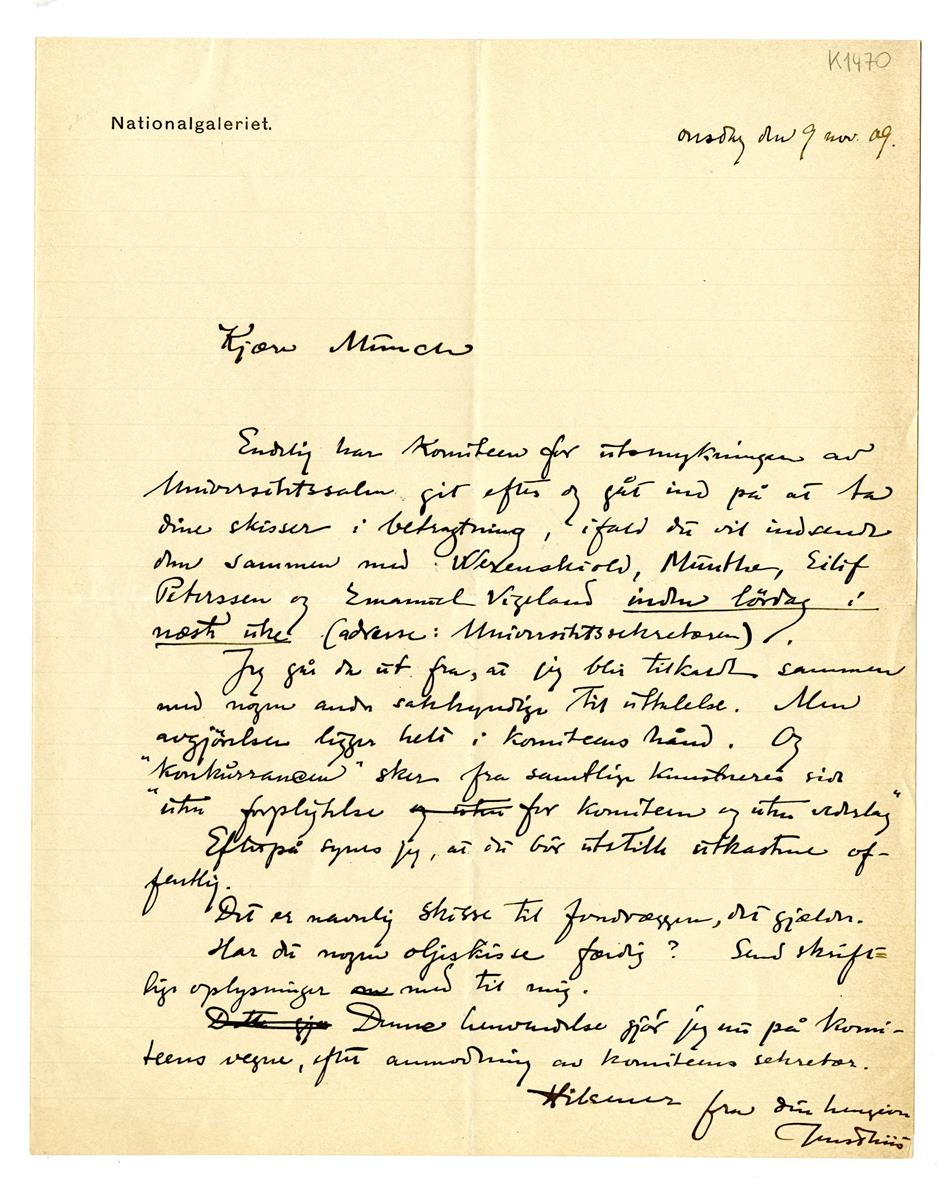 K1470
Nationalgaleriet.
onsdag den 9 nov. 09.
Kjære Munch
Endelig har Komiteen for utsmykningen av
Universitetssalen git efter og gåt ind på at ta
dine skisser i betragtning, ifald du vil indsende
dem sammen med Werenskiold, Munthe, Eilif
Peterssen og Emanuel Vigeland inden lördag i
næste uke (adresse: Universitetssekretæren).
Jeg går da ut fra, at jeg blir tilkaldt sammen
med nogen andre sakkyndige til uttalelse. Men
avgjörelsen ligger helt i komiteens hånd. Og
"konkurrancen" sker fra samtlige kunstneres side
"uten forpligtelse og uten for komiteen og uten vederlag"
Efterpå synes jeg, at du bör utstille utkastene of-
fentlig.
Det er navnlig skisse til fondvæggen, det gjælder.
Har du nogen oljeskisse færdig? Send skrift=
lige oplysninger om med til mig.
Dette gjø Denne henvendelse gjör jeg nu på komi-
teens vegne, efter anmodning av komiteens sekretær.
Hilsener fra din hengivne
Jens Thiis